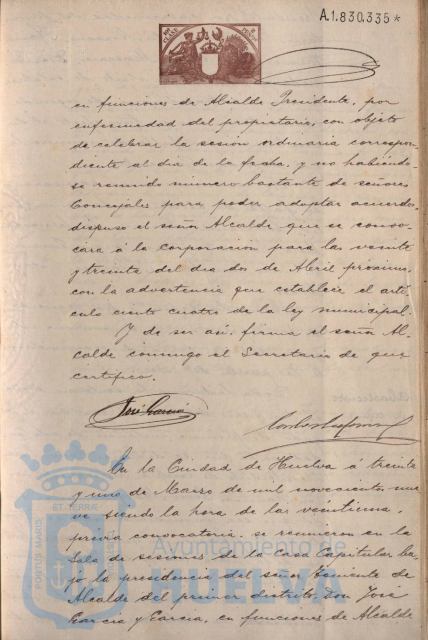 A.1.830.335*
en funciones de Alcalde Presidente, por
enfermedad del propietario, con objeto
de celebrar la sesión ordinaria correspon-
diente al dia de la fecha, y no habiendo-
se reunido número bastante de señores
Concejales para poder adoptar acuerdo,
dispuso el señor Alcalde que se convo-
cára á la Corporación para las veinte
y treinta del dia dos de Abril próximo,
con la advertencia que establece el artí-
culo ciento cuatro de la ley municipal.
Y de ser así, firma el señor Al-
calde conmigo el Secretario de que
certifico.
José García
En la Ciudad de Huelva á treinta
y uno de Marzo de mil novecientos nue-
ve siendo la hora de las veintiuna,
prévia convocatoria, se reunieron en la
Sala de sesiones de la Casa Capitular ba-
jo la presidencia del señor Teniente de
Alcalde del primer distrito, Don José
García y García, en funciones de Alcalde
Ayuntamiento de
HUELVA
PORTUS MARIS ET TERRAE